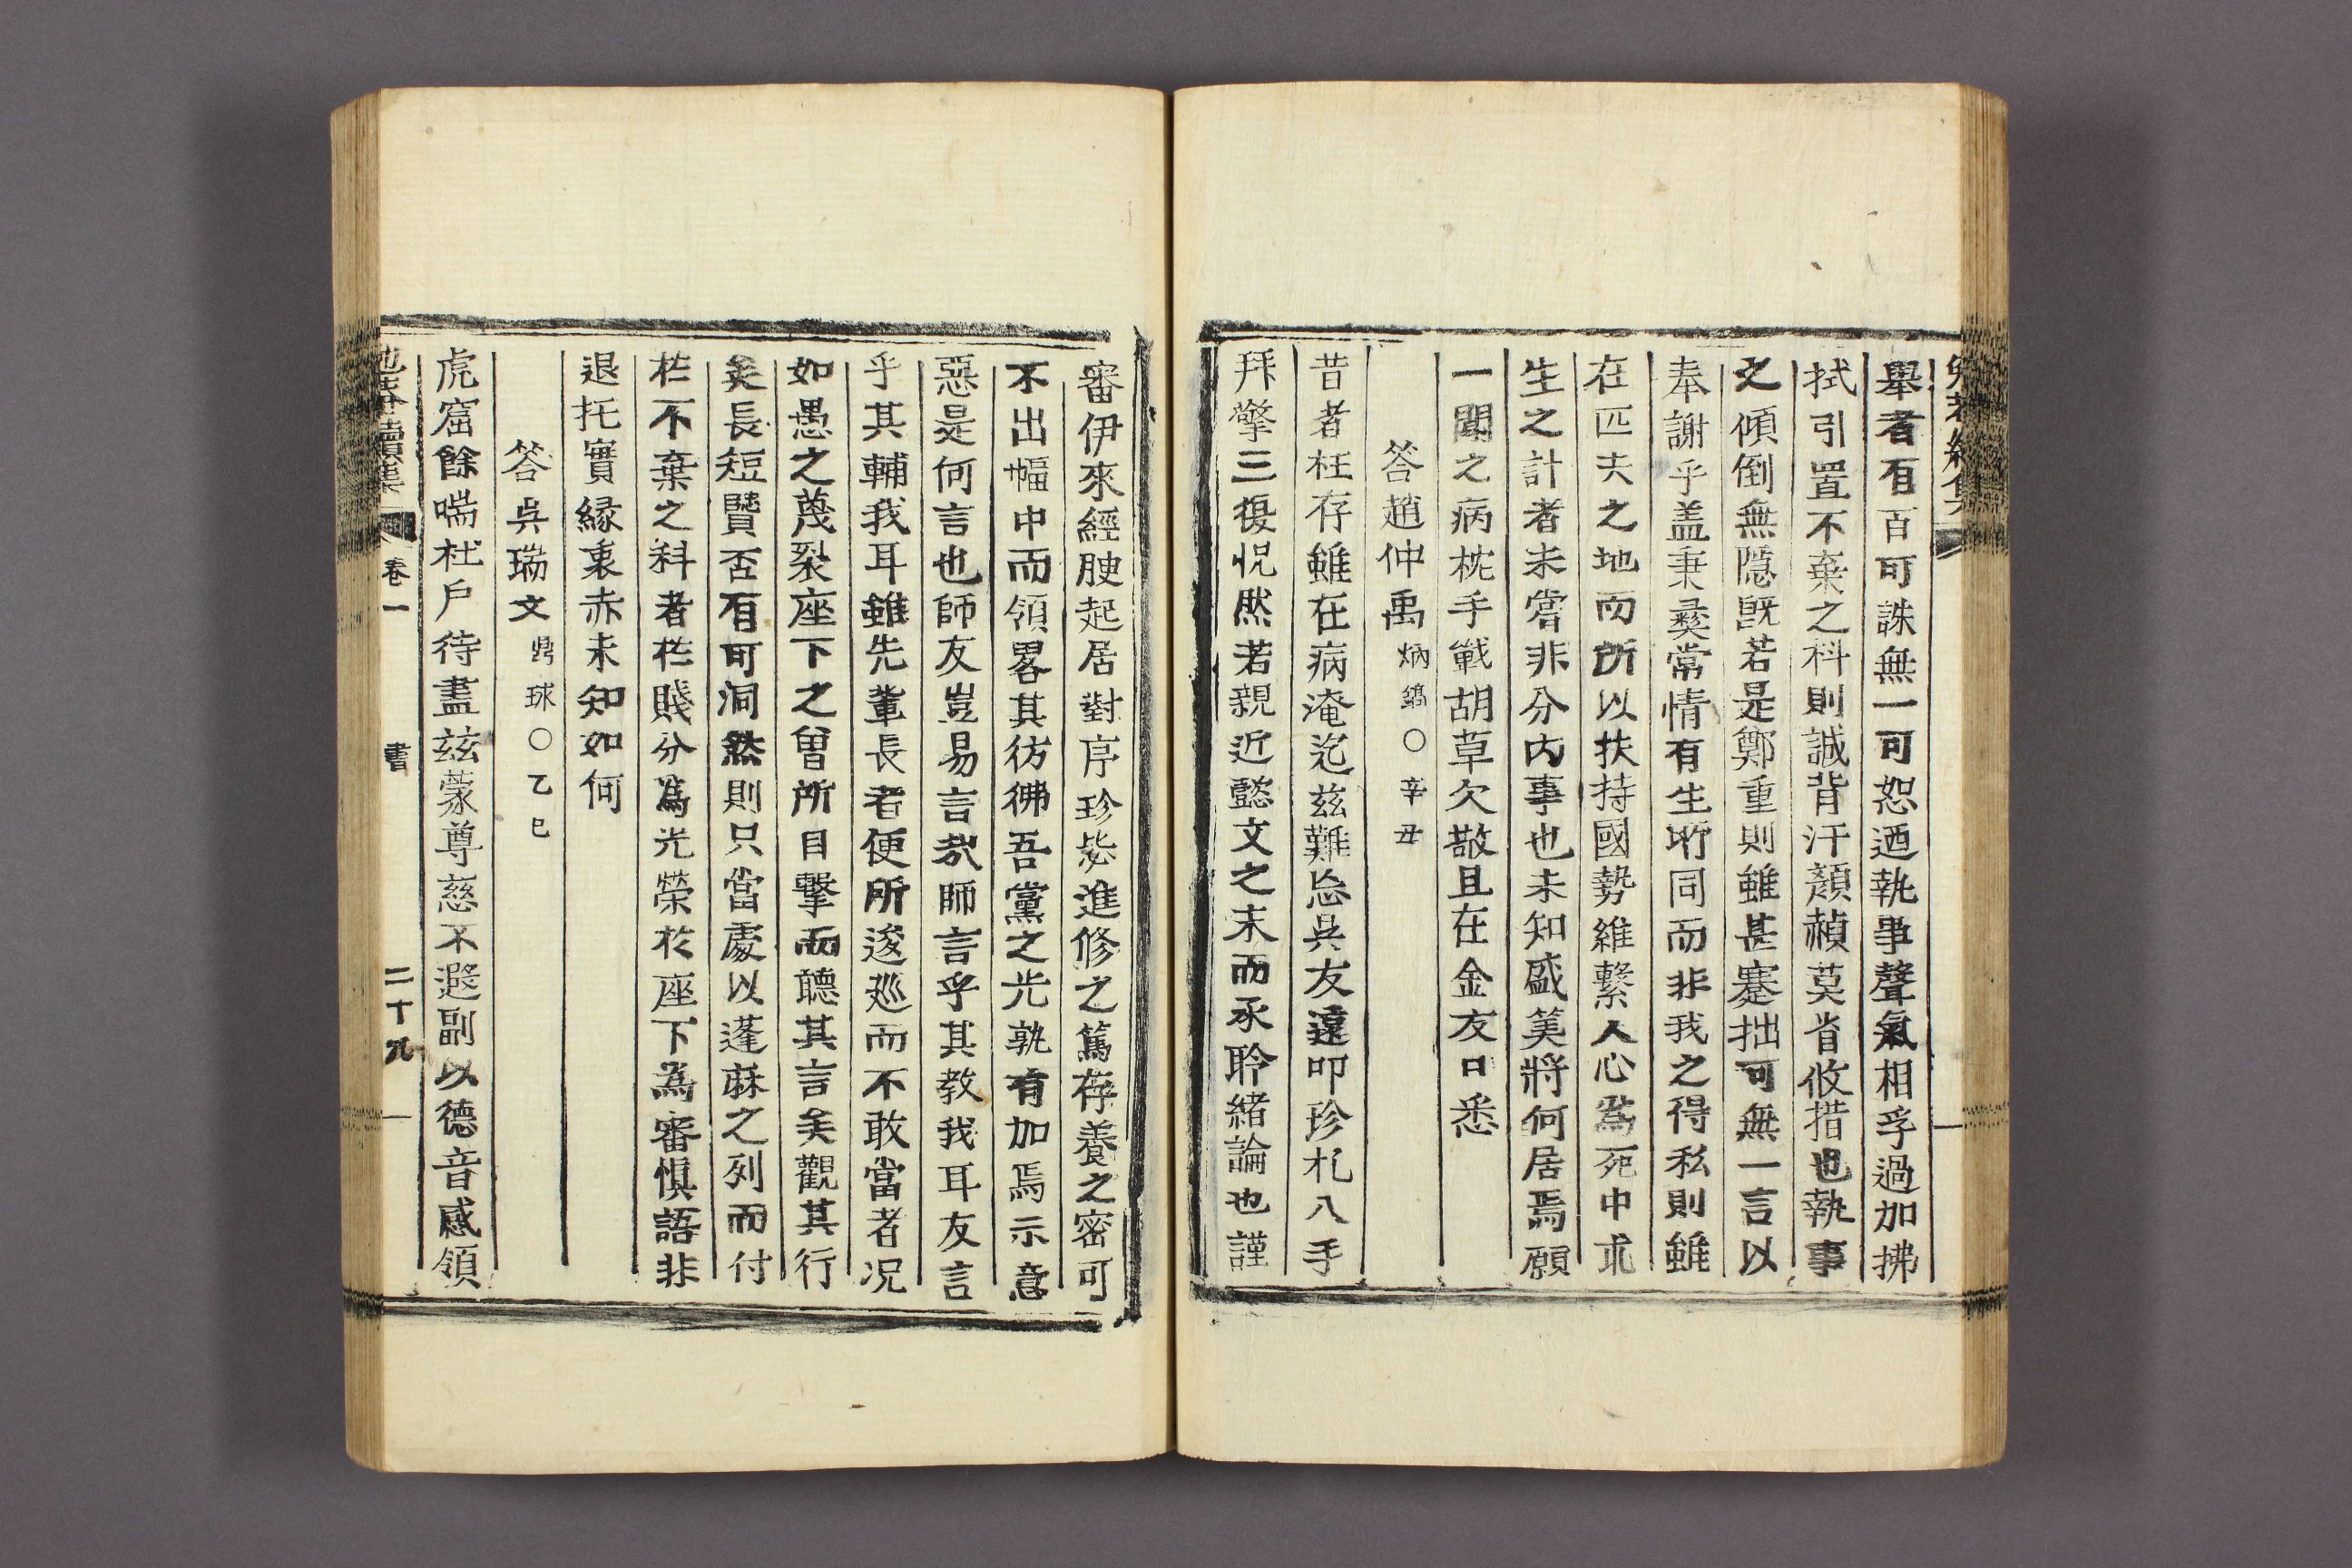 擧者有百可誅無一可恕迺執事聲氣相孚過加拂
拭引置不棄之科則誠背汗顔赬莫省攸措也執事
之傾倒無隱旣若是鄭重則雖甚蹇拙可無一言以
奉謝乎盖秉彜常情有生所同而非我之得私則雖
在匹夫之地而所以扶持國勢維繫人心爲死中求
生之計者未嘗非分內事也未知盛筭將何居焉願
一聞之病枕手戰胡草欠敬且在金友口悉
答趙仲禹炳鎬○辛丑
昔者枉存雖在病淹迄玆難忘吳友遠叩珍札入手
拜擎三復怳然若親近懿文之末而承聆緖論也謹
審伊來經腴起居對序珍毖進修之篤存養之密可
不出幅中而領畧其彷彿吾黨之光孰有加焉示意
惡是何言也師友豈易言哉師言乎其敎我耳友言
乎其輔我耳雖先輩長者便所逡廵而不敢當者况
如愚之蔑裂座下之曾所目擊而聽其言矣觀其行
矣長短賢否有可洞然則只當處以蓬麻之列而付
於不棄之科者於賤分爲光榮於座下爲審愼語非
退托實緣衷赤未知如何
答吳瑞文鼎球○乙巳
虎窟餘喘杜戶待盡玆蒙尊慈不遐副以德音感領
續集 卷一 書 二十九